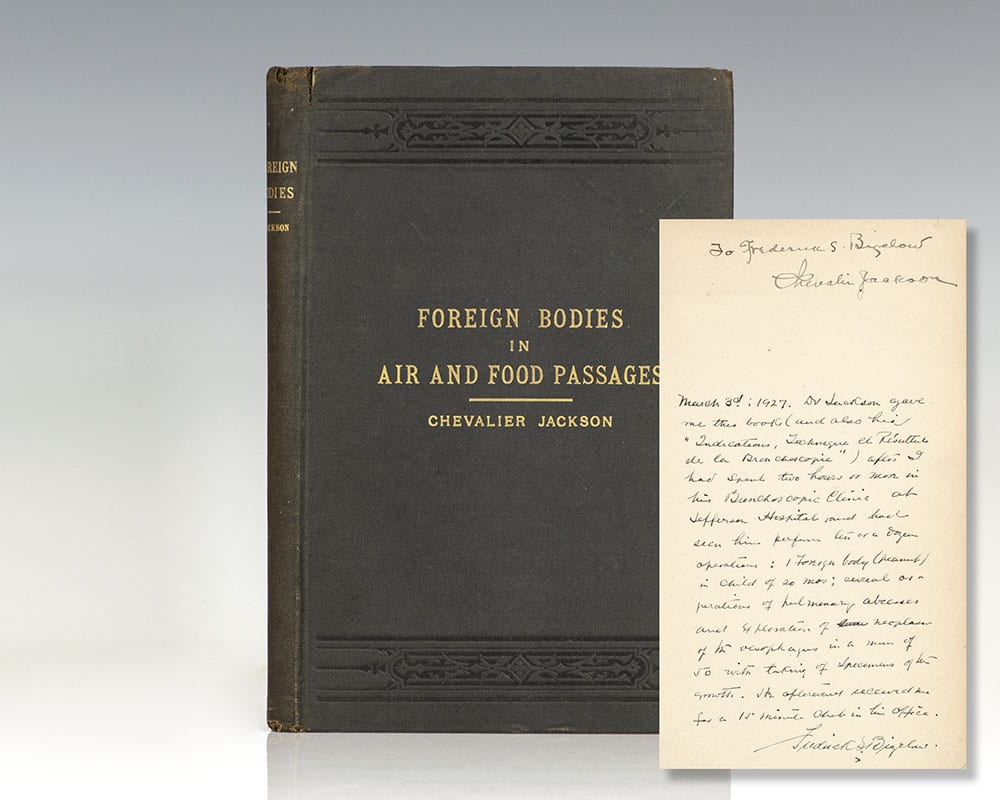 REIGN
DIES
CKSON
FOREIGN BODIES
IN
AIR AND FOOD PASSAGES
CHEVALIER JACKSON
To Frederick S. Bigelow
Chevalier Jackson
March 3d: 1927. Dr Jackson gave
me this book (and also his
"Indications, Technique et Résultats
de la Bronchoscopie") after I
had spent two hours or more in
his Bronchoscopic Clinic at
Jefferson Hospital and had
seen him perform ten or a dozen
operations: 1 Foreign body (peanut)
in child of 20 mos; several as-
pirations of pulmonary abcesses
and exploration of neoplasm
of the oesophagus in a man of
50 with taking of specimens of the
growth. He afterward received me
for a 15 minute chat in his office.
Fredrick S. Bigelow.